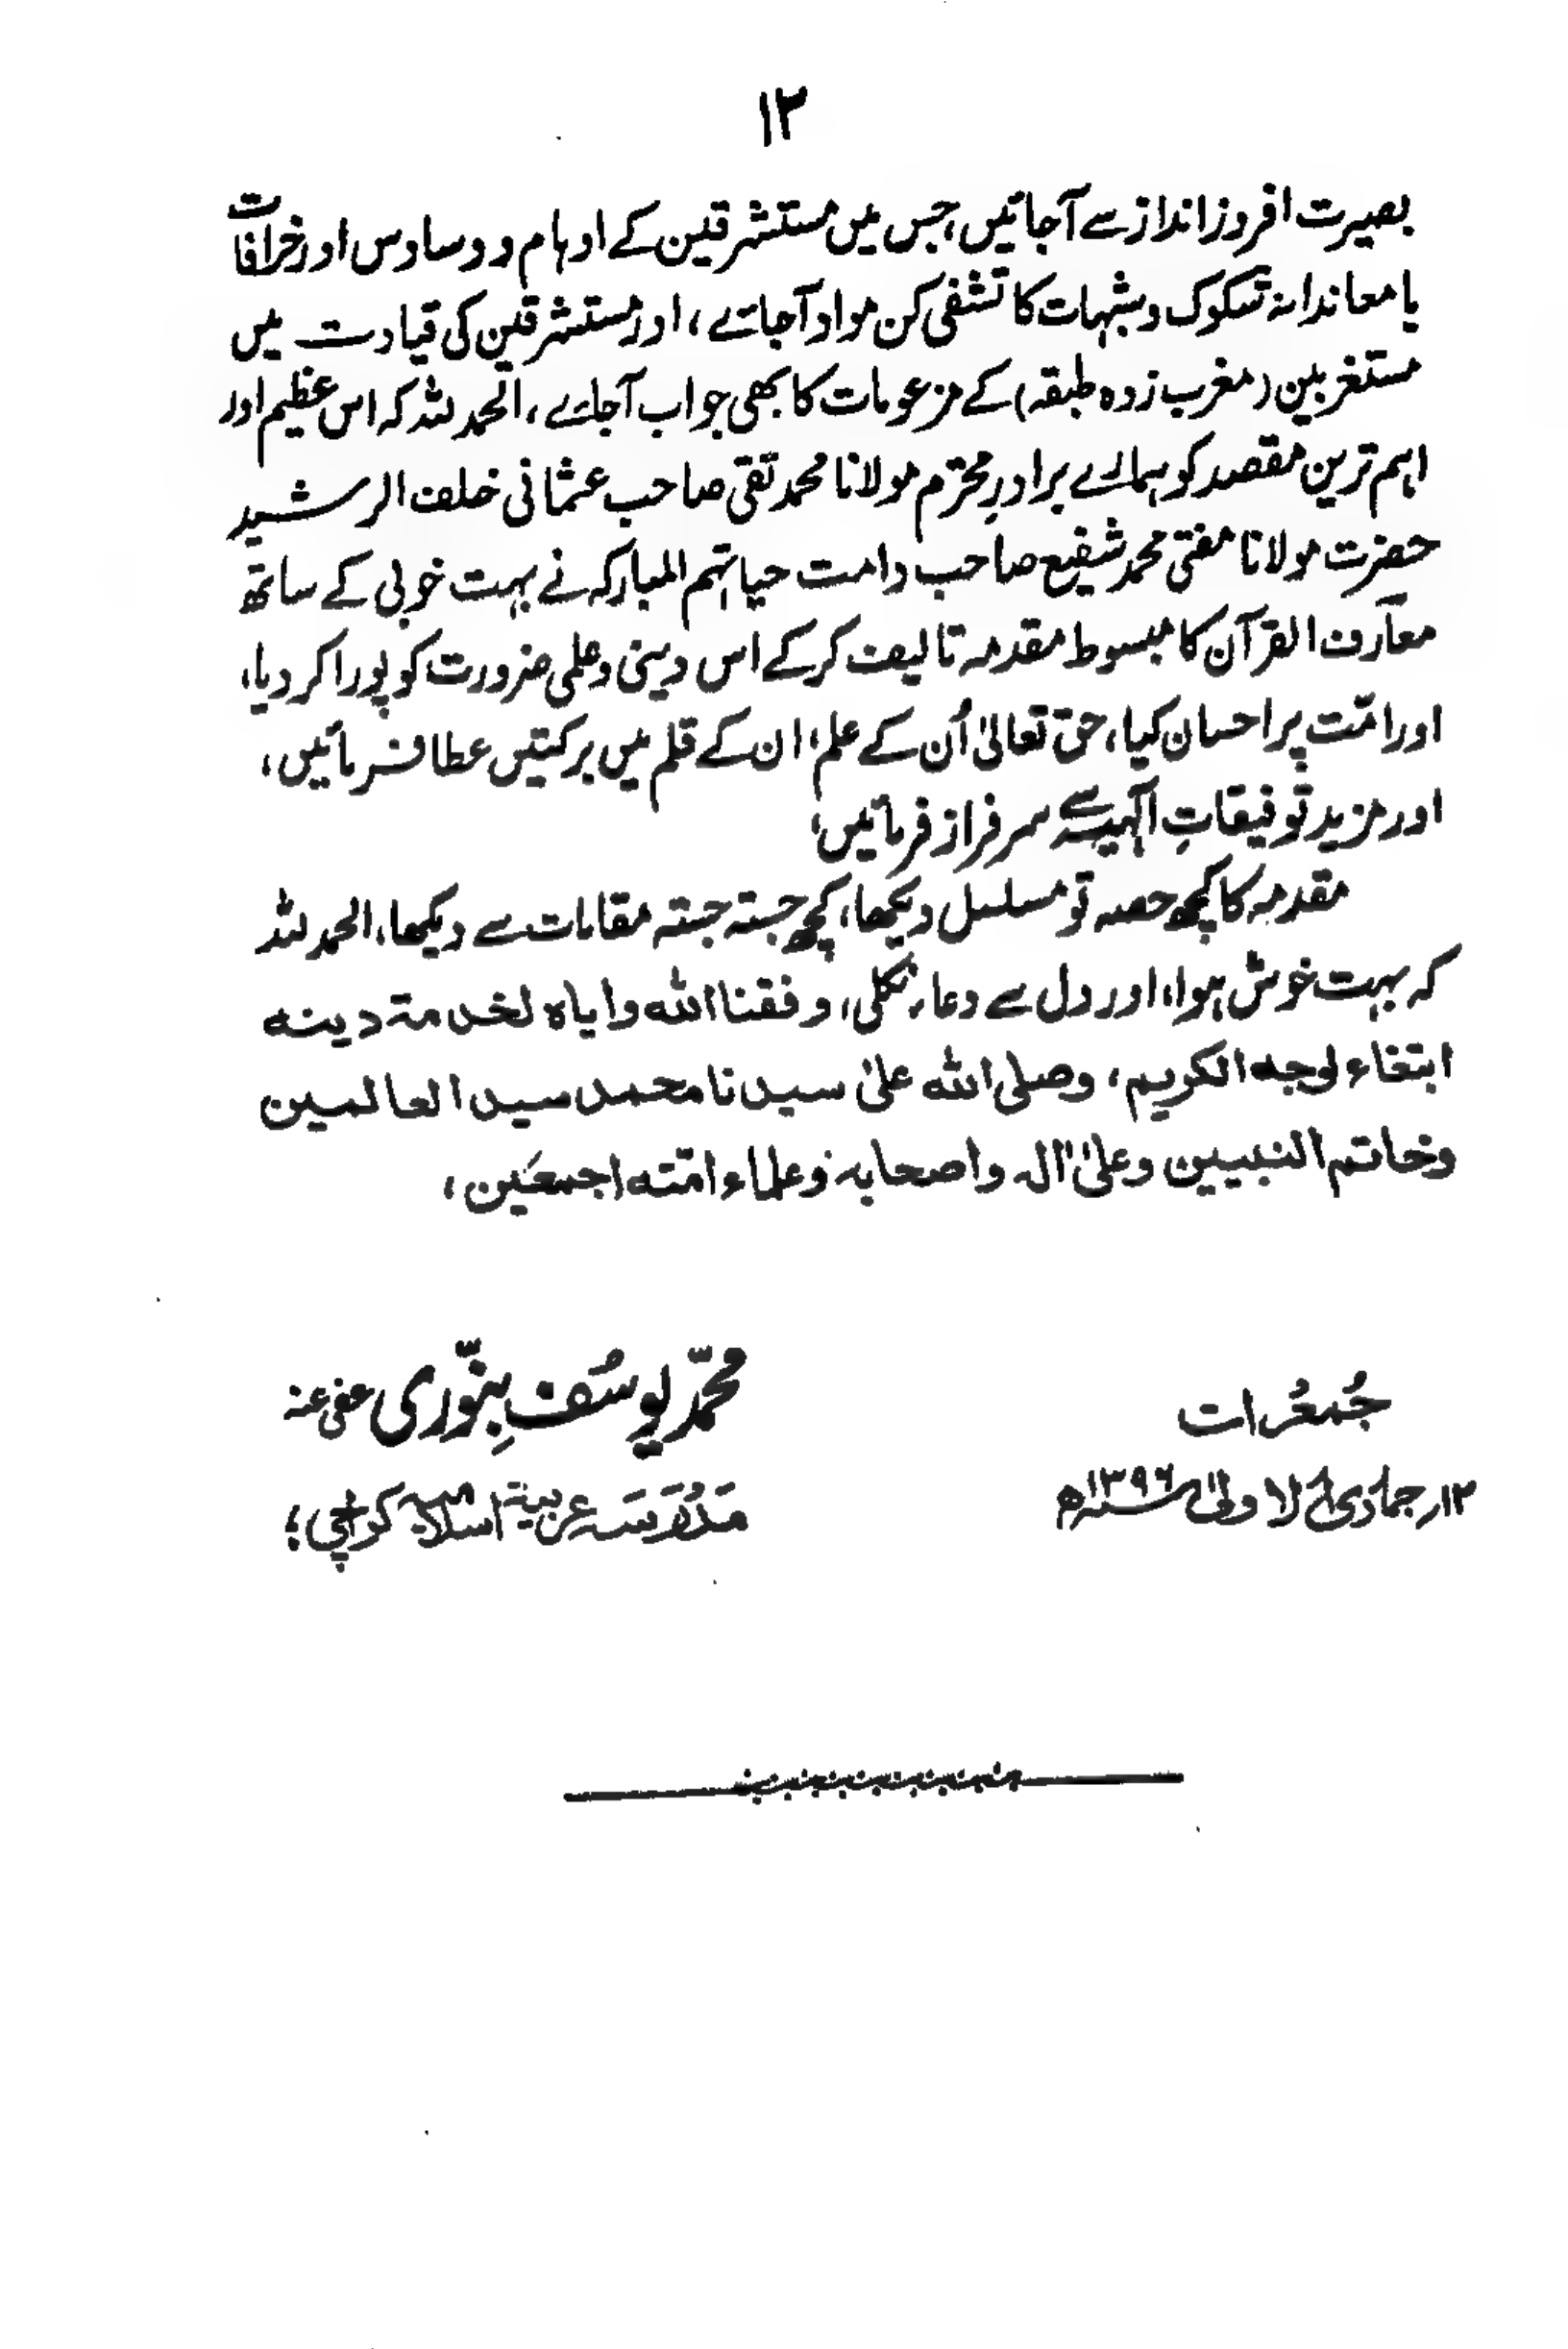 ۱۲
بصیرت افروز انداز سے آجائیں، جس میں مستشرقین کے اوہام و وساوس اور خرافات
یا معاندانہ شکوک و شبہات کا تشفی کن مواد آجائے، اور مستشرقین کی قیادت میں
مستغربین (مغرب زدہ طبقہ) کے مزعومات کا بھی جواب آجائے، الحمد للہ کہ اس عظیم اور
اہم ترین مقصد کو ہمارے برادرِ محترم مولانا محمد تقی صاحب عثمانی خلف الرشید
حضرت مولانا مفتی محمد شفیع صاحب دامت حیاتہم المبارکہ نے بہت خوبی کے ساتھ
معارف القرآن کا مبسوط مقدمہ تالیف کرکے اس دینی و علمی ضرورت کو پورا کر دیا،
اور امّت پر احسان کیا، حق تعالیٰ اُن کے علم، ان کے قلم میں برکتیں عطا فرمائیں،
اور مزید توفیقاتِ الٰہیہ سے سرفراز فرمائیں،
مقدمہ کا کچھ حصہ تو مسلسل دیکھا، کچھ جستہ جستہ مقامات سے دیکھا، الحمد للہ
کہ بہت خوش ہوا، اور دل سے دعاء نکلی، وفقنا اللہ وایاہ لخدمۃ دینہ
ابتغاء لوجہہ الکریم، وصلی اللہ علیٰ سیدنا محمد سید العالمین
وخاتم النبیین وعلیٰ اٰلہ واصحابہ وعلماء امّتہ اجمعَین،
جُمعُرات
۱۲ر جمادی الاولیٰ سنہ ۱۳۹۶ھ
محمّد یوسُف بِنّوری عفی عنہ
مَدُرَسَہ عربیۃ اسلامیہ کراچی؛